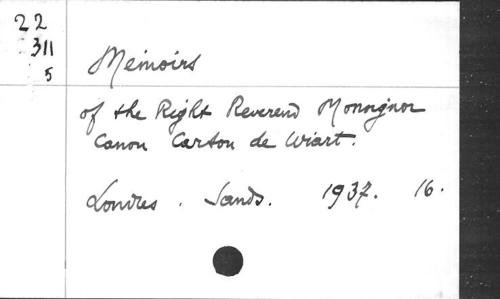 22
311
5
Memoirs
of the Right Reverend Monsignor
Canon Carton de Wiart.
Londres. Sands. 1937. 16.